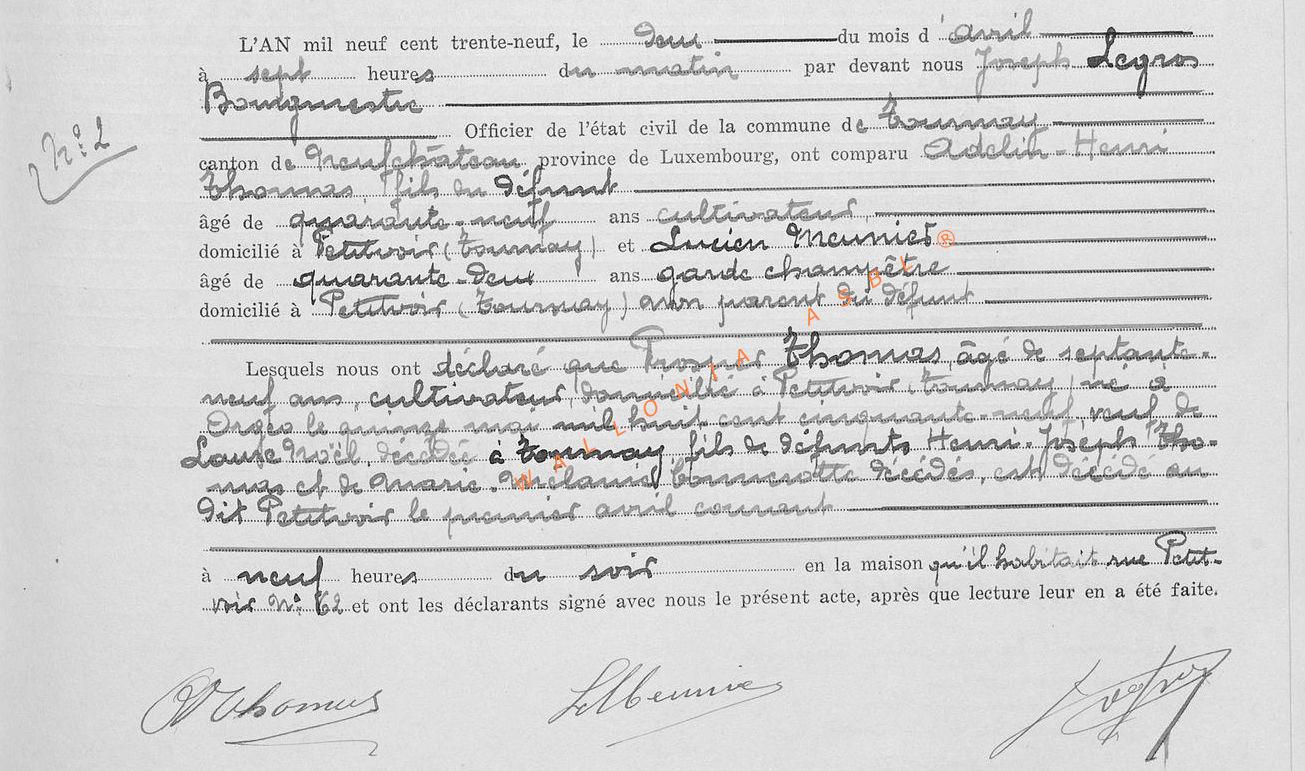 L'AN mil neuf cent trente-neuf, le deux du mois d'avril
à sept heures du matin par devant nous Joseph Legros
Bourgmestre
Officier de l'état civil de la commune de Tournay
N° 2
canton de Neufchâteau province de Luxembourg, ont comparu Adelin-Henri
Thomas, fils du défunt
âgé de quarante-neuf ans cultivateur,
domicilié à Petitvoir (Tournay) et Lucien Meunier
âgé de quarante-deux ans garde champêtre
domicilié à Petitvoir (Tournay) non parent du défunt
Lesquels nous ont déclaré que Prosper Thomas, âgé de septante-
neuf ans, cultivateur, domicilié à Petitvoir (Tournay) né à
Orgeo le quinze mai mil huit cent cinquante-neuf, veuf de
Laure Noël, décédée à Tournay, fils de défunts Henri-Joseph Tho-
mas et de Marie-Mélanie décédés, est décédé au
dit Petitvoir le premier avril courant
à neuf heures du soir en la maison qu'il habitait rue Petit-
voir N° 62 et ont les déclarants signé avec nous le présent acte, après que lecture leur en a été faite.
WALLONIA ASBL ®
Thomas LMeunier